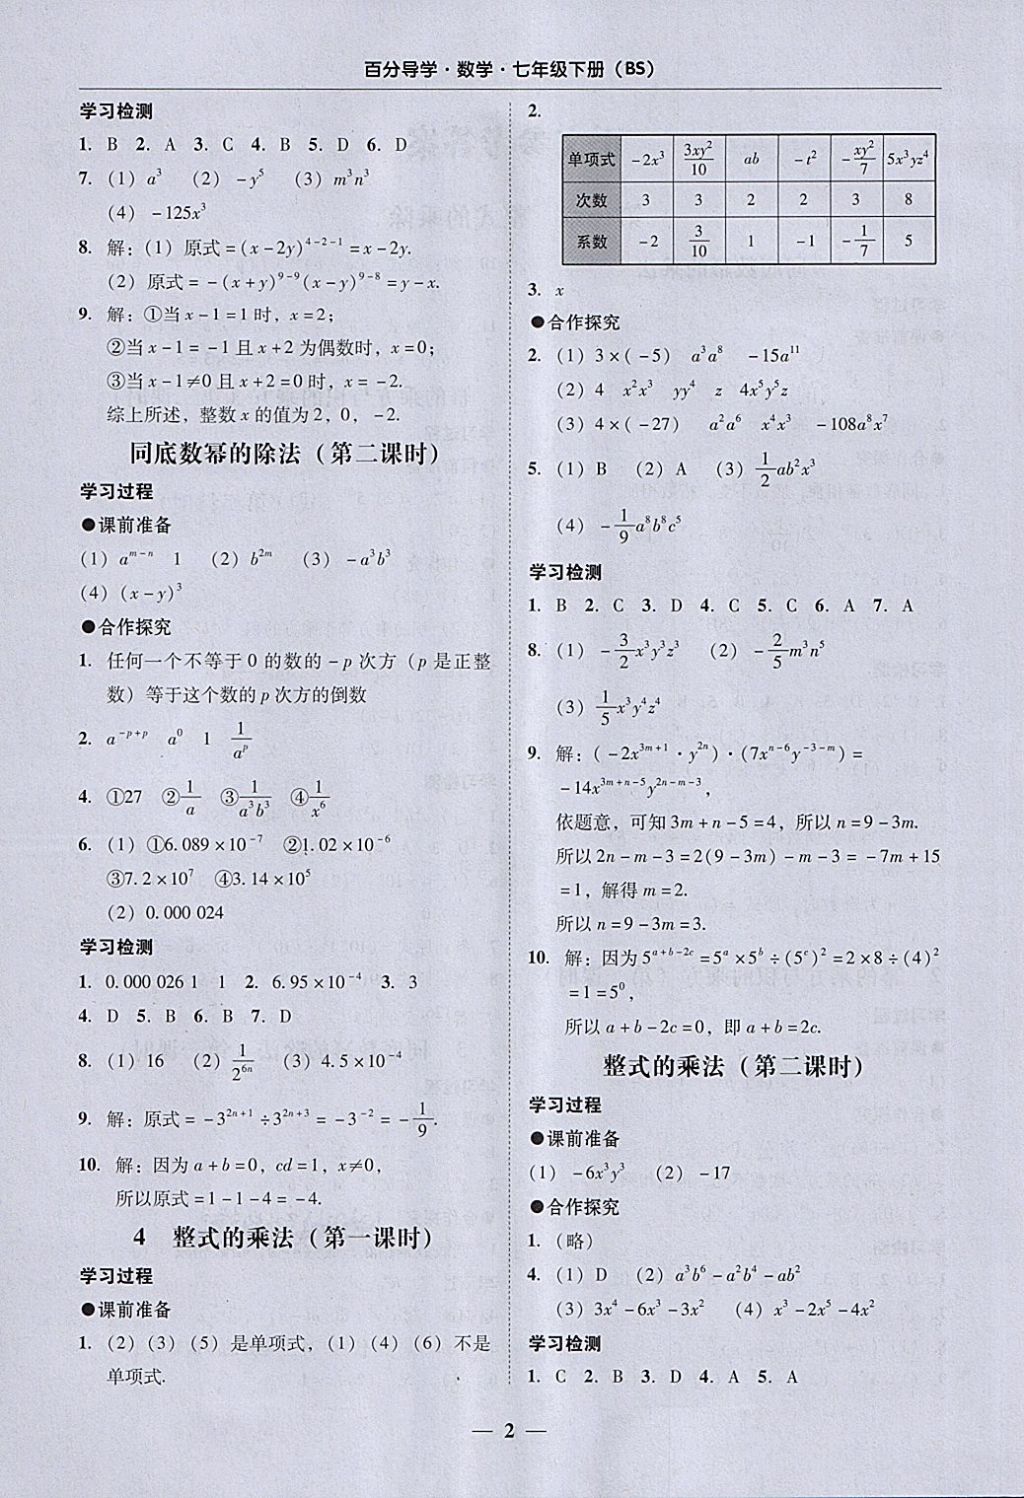 百分导学·数学·七年级下册（BS）
学习检测
1. B 2. A 3. C 4. B 5. D 6. D
7. （1）a³ （2）－y⁵ （3）m³n³
（4）－125x³
8. 解：（1）原式＝(x－2y)⁴⁻²⁻¹＝x－2y.
（2）原式＝－(x＋y)⁹⁻⁹(x－y)⁹⁻⁸＝y－x.
9. 解：①当x－1＝1时，x＝2；
②当x－1＝－1且x＋2为偶数时，x＝0；
③当x－1≠0且x＋2＝0时，x＝－2.
综上所述，整数x的值为2，0，－2.
同底数幂的除法（第二课时）
学习过程
●课前准备
（1）a^{m－n} 1 （2）b^{2m} （3）－a³b³
（4）(x－y)³
●合作探究
1. 任何一个不等于0的数的－p次方（p是正整
数）等于这个数的p次方的倒数
2. a^{－p＋p} a⁰ 1 1/a^p
4. ①27 ②1/a ③1/(a³b³) ④1/x⁶
6. （1）①6.089×10⁻⁷ ②1.02×10⁻⁶
③7.2×10⁷ ④3.14×10⁵
（2）0.000 024
学习检测
1. 0.000 026 1 1 2. 6.95×10⁻⁴ 3. 3
4. D 5. B 6. B 7. D
8. （1）16 （2）1/2^{6n} （3）4.5×10⁻⁴
9. 解：原式＝－3^{2n＋1}÷3^{2n＋3}＝－3⁻²＝－1/9.
10. 解：因为a＋b＝0，cd＝1，x≠0，
所以原式＝1－1－4＝－4.
4 整式的乘法（第一课时）
学习过程
●课前准备
1. （2）（3）（5）是单项式，（1）（4）（6）不是
单项式.
2.
单项式 －2x³ 3xy²/10 ab －t² －xy²/7 5x³yz⁴
次数 3 3 2 2 3 8
系数 －2 3/10 1 －1 －1/7 5
3. x
●合作探究
2. （1）3×(－5) a³a⁸ －15a¹¹
（2）4 x²x³ yy⁴ z 4x⁵y⁵z
（3）4×(－27) a²a⁶ x⁴x³ －108a⁸x⁷
5. （1）B （2）A （3）1/2ab²x³
（4）－1/9a⁸b⁸c⁵
学习检测
1. B 2. C 3. D 4. C 5. C 6. A 7. A
8. （1）－3/2x³y³z³ （2）－2/5m³n⁵
（3）1/5x³y⁴z⁴
9. 解：(－2x^{3m＋1}·y^{2n})·(7x^{n－6}y^{－3－m})＝
－14x^{3m＋n－5}y^{2n－m－3}，
依题意，可知3m＋n－5＝4，所以n＝9－3m.
所以2n－m－3＝2(9－3m)－m－3＝－7m＋15
＝1，解得m＝2.
所以n＝9－3m＝3.
10. 解：因为5^{a＋b－2c}＝5^a×5^b÷(5^c)²＝2×8÷(4)²
＝1＝5⁰，
所以a＋b－2c＝0，即a＋b＝2c.
整式的乘法（第二课时）
学习过程
●课前准备
（1）－6x³y³ （2）－17
●合作探究
1. （略）
4. （1）D （2）a³b⁶－a²b⁴－ab²
（3）3x⁴－6x³－3x² （4）x³－2x⁵－4x²
学习检测
1. C 2. B 3. D 4. A 5. A
— 2 —